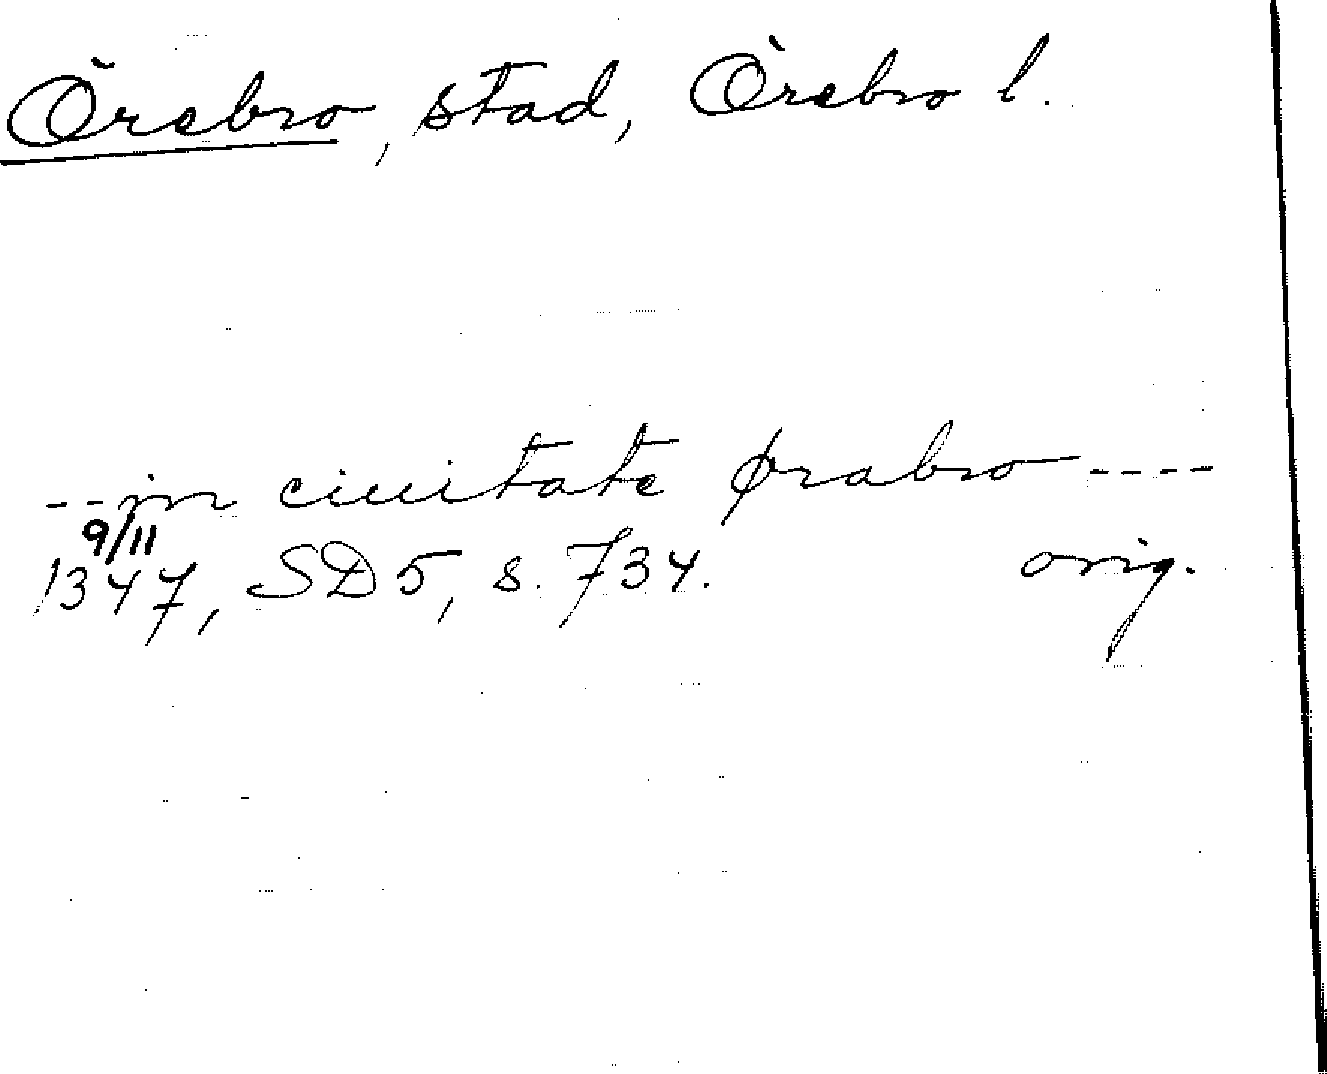 Örebro, stad, Örebro l.
--in ciuitate ørabro ----
9/11
1347, SD5, s. 734. orig.